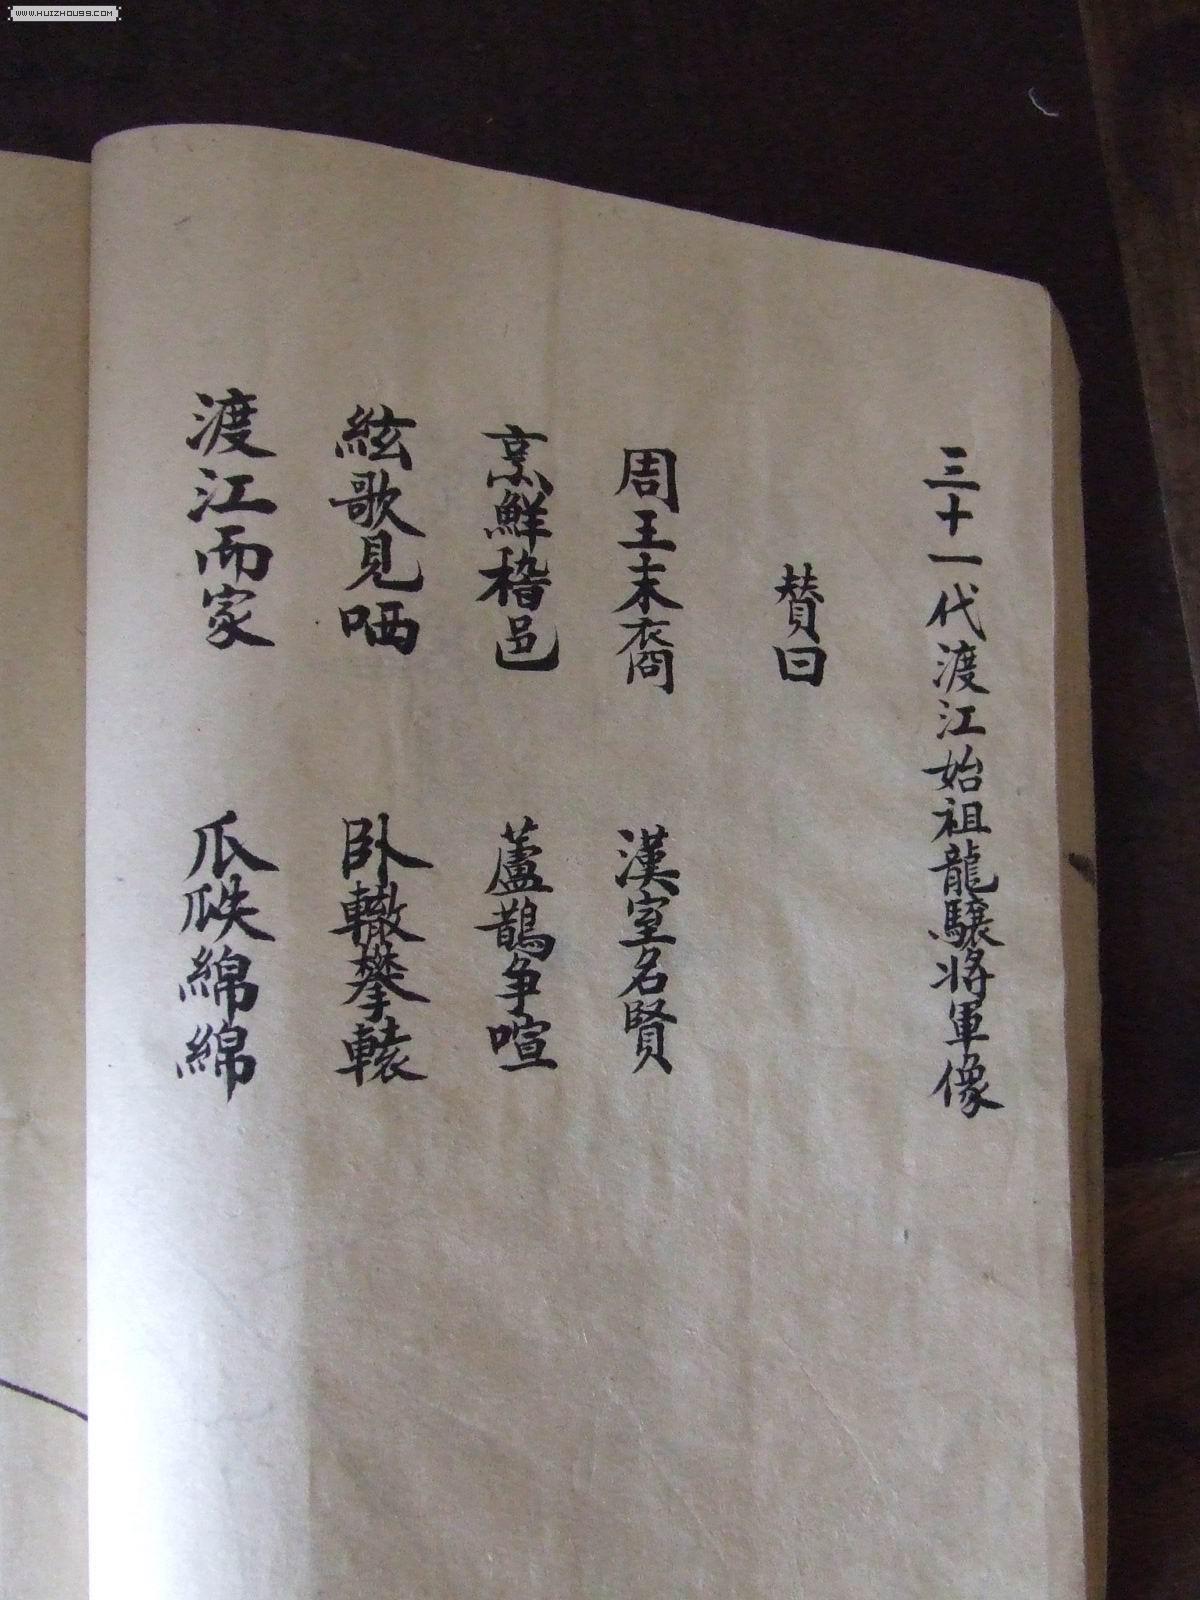 WWW.HUIZHOU99.COM
三十一代渡江始祖龍驤將軍像
賛曰
周王末裔 漢室名賢
烹鮮稽邑 蘆鵲争喧
絃歌見哂 卧轍攀轅
渡江而家 瓜瓞綿綿